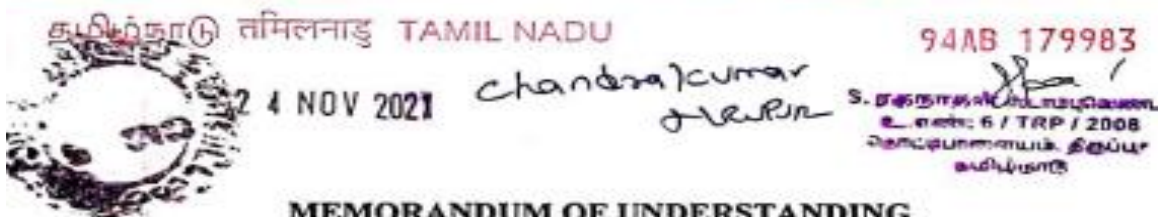 தமிழ்நாடு तमिलनाडु TAMIL NADU
94AB 179983
24 NOV 2021
Chandra kumar
S.
உ.எண்: 6 / TRP / 2008
தொட்டிபாளையம், திருப்பூர்
தமிழ்நாடு
MEMORANDUM OF UNDERSTANDING